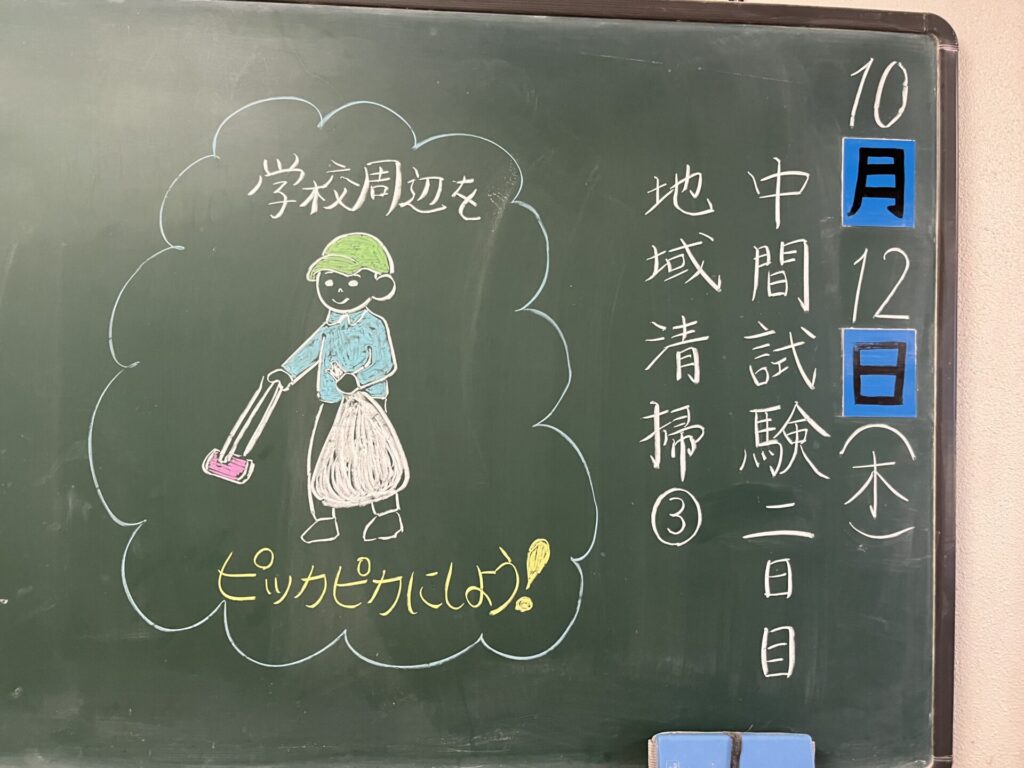 10月12日(木)
中間試験二日目
地域清掃③
学校周辺を
ピッカピカにしよう!